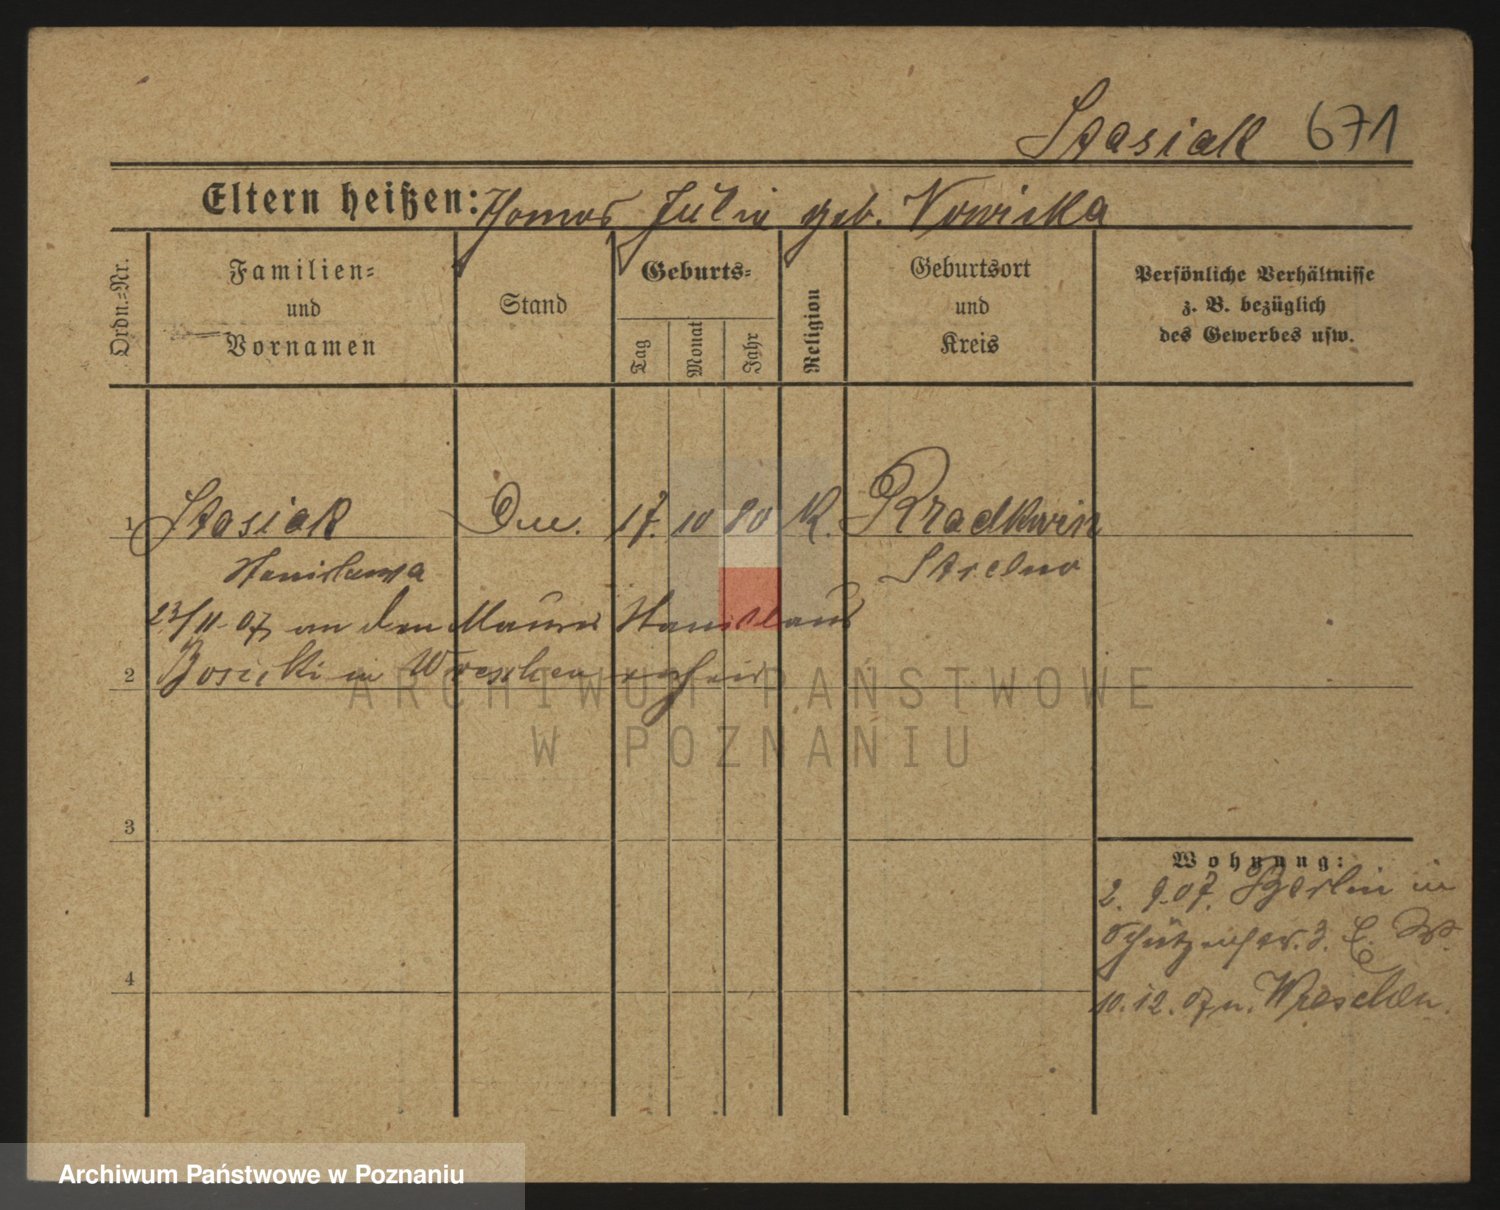 Stasiak 671
Eltern heißen: Thomas Julia geb. Nowicka
Ordn.-Nr.
Familien-
und
Vornamen
Stand
Geburts-
Tag
Monat
Jahr
Religion
Geburtsort
und
Kreis
Persönliche Verhältnisse
z. B. bezüglich
des Gewerbes usw.
1 Stasiak 17. 10 80 K.
Stanislawa Strelno
23/11 07 an den Maurer Stanislaus
2 in Wreschen verheir
3
4
Wohnung:
2. 9.07. Berlin
10.12.07 n. Wreschen.
ARCHIWUM PAŃSTWOWE
W POZNANIU
Archiwum Państwowe w Poznaniu